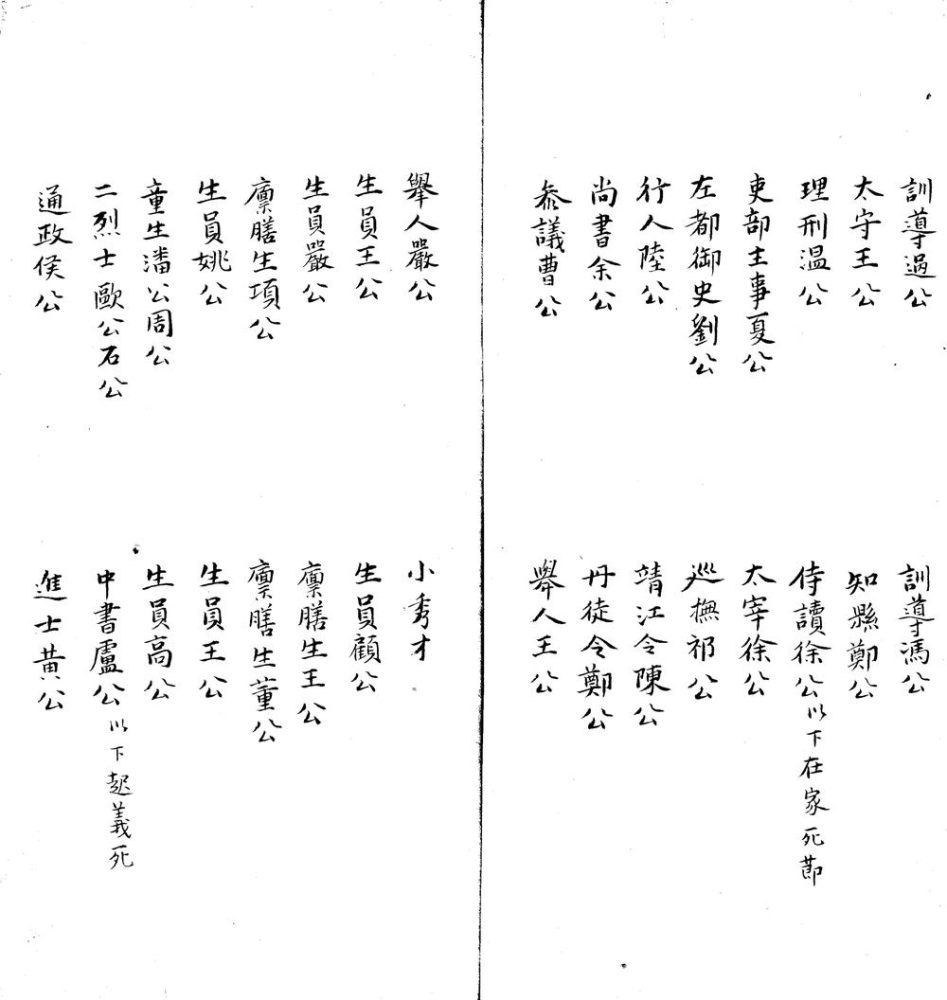 訓導過公
訓導馮公
太守王公
知縣鄭公
理刑温公
侍讀徐公以下在家死莭
吏部主事夏公
太宰徐公
左都御史劉公
巡撫祁公
行人陸公
靖江令陳公
尚書余公
丹徒令鄭公
叅議曹公
舉人王公
舉人嚴公
小秀才
生員王公
生員顧公
生員嚴公
廩膳生王公
廩膳生項公
廩膳生董公
生員姚公
生員王公
童生潘公周公
生員高公
二烈士歐公石公
中書盧公以下起義死
通政侯公
進士黄公